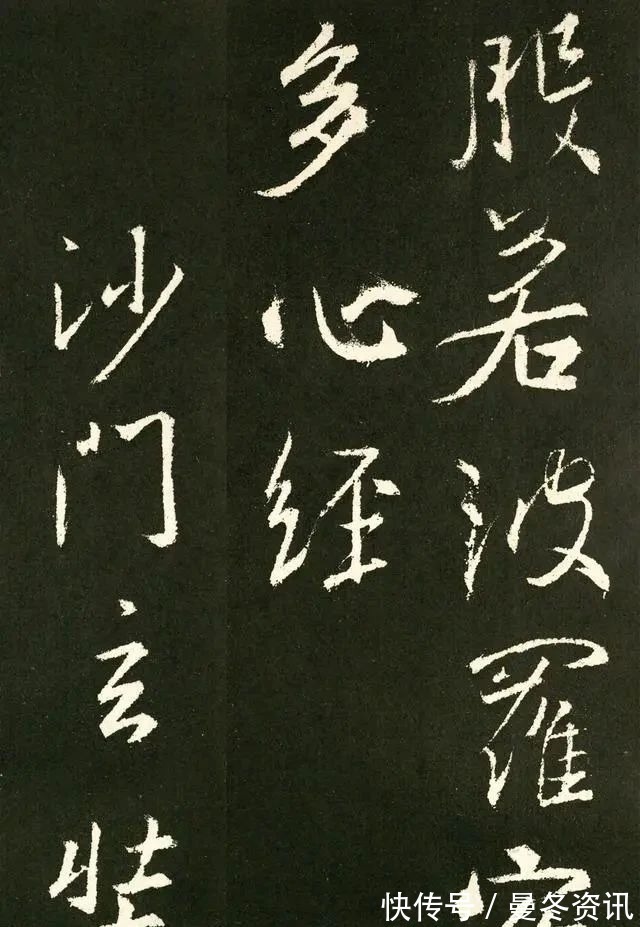 般若波羅
多心經
沙門玄奘
快传号 / 曼冬资讯